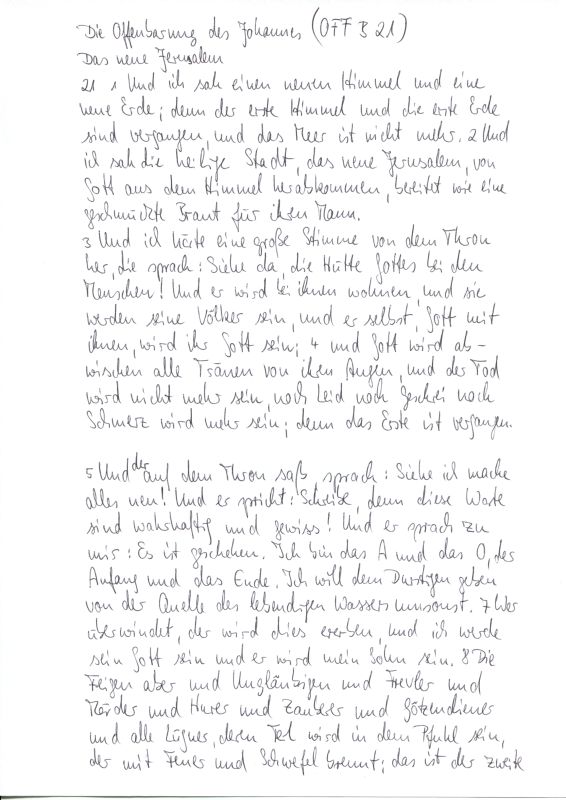 Die Offenbarung des Johannes (OFF B 21)
Das neue Jerusalem
21 1 Und ich sah einen neuen Himmel und eine
neue Erde; denn der erste Himmel und die erste Erde
sind vergangen, und das Meer ist nicht mehr. 2 Und
ich sah die heilige Stadt, das neue Jerusalem, von
Gott aus dem Himmel herabkommen, bereitet wie eine
geschmückte Braut für ihren Mann.
3 Und ich hörte eine große Stimme von dem Thron
her, die sprach: Siehe da, die Hütte Gottes bei den
Menschen! Und er wird bei ihnen wohnen, und sie
werden seine Völker sein, und er selbst, Gott mit
ihnen, wird ihr Gott sein; 4 und Gott wird ab-
wischen alle Tränen von ihren Augen, und der Tod
wird nicht mehr sein, noch Leid noch Geschrei noch
Schmerz wird mehr sein; denn das Erste ist vergangen.
5 Und der auf dem Thron saß, sprach: Siehe ich mache
alles neu! Und er spricht: Schreibe, denn diese Worte
sind wahrhaftig und gewiss! Und er sprach zu
mir: Es ist geschehen. Ich bin das A und das O, der
Anfang und das Ende. Ich will dem Durstigen geben
von der Quelle des lebendigen Wassers umsonst. 7 Wer
überwindet, der wird dies ererben, und ich werde
sein Gott sein und er wird mein Sohn sein. 8 Die
Feigen aber und Ungläubigen und Frevler und
Mörder und Hurer und Zauberer und Götzendiener
und alle Lügner, deren Teil wird in dem Pfuhl sein,
der mit Feuer und Schwefel brennt; das ist der zweite